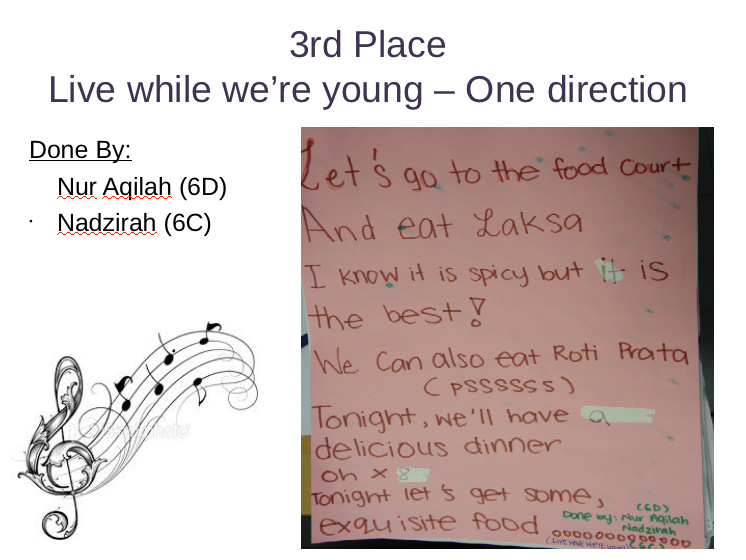 3rd Place
Live while we're young – One direction
Done By:
Nur Aqilah (6D)
Nadzirah (6C)
Let's go to the food court
And eat Laksa
I know it is spicy but it is
the best!
We Can also eat Roti Prata
( PSSSSSS )
Tonight, we'll have a
delicious dinner
oh x 8
Tonight let's get some,
exquisite food
(6D)
Done by: Nur Aqilah
Nadzirah
(6C)
(Live while we're young)